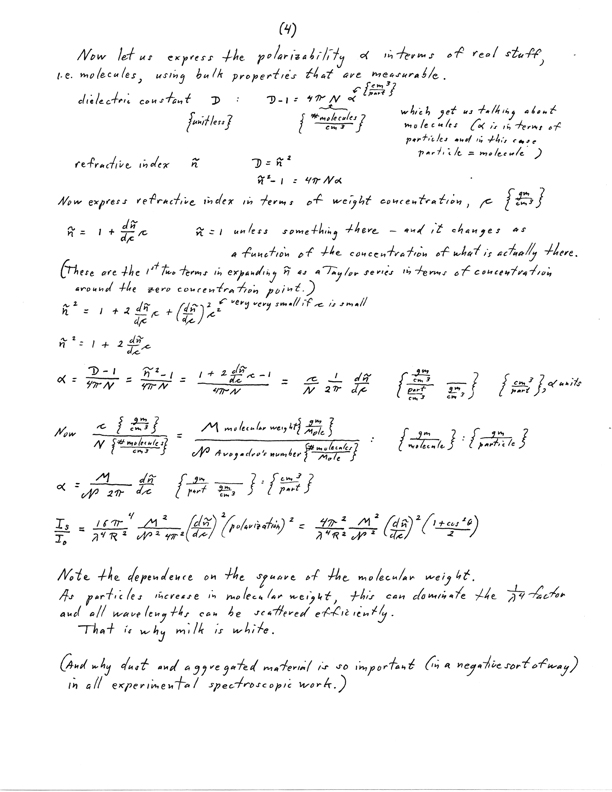 (4)
Now let us express the polarizability α in terms of real stuff,
i.e. molecules, using bulk properties that are measurable.
dielectric constant D : D-1 = 4π N α {cm³/part}
{unitless} {# molecules/cm³}
which get us talking about
molecules (α is in terms of
particles and in this case
particle = molecule)
refractive index ñ D = ñ²
ñ²-1 = 4π Nα
Now express refractive index in terms of weight concentration, c {gm/cm³}
ñ = 1 + dñ/dc c ñ = 1 unless something there – and it changes as
a function of the concentration of what is actually there.
(These are the 1st two terms in expanding ñ as a Taylor series in terms of concentration
around the zero concentration point.)
ñ² = 1 + 2 dñ/dc c + (dñ/dc)² c² very very small if c is small
ñ² = 1 + 2 dñ/dc c
α = D-1/4πN = ñ²-1/4πN = 1 + 2 dñ/dc c - 1/4πN = c/N 1/2π dñ/dc {gm/cm³ / part/cm³ gm/cm³} {cm³/part}, α units
Now c {gm/cm³} / N {# molecules/cm³} = M molecular weight {gm/Mole} / N Avogadro's number {# molecules/Mole} : {gm/molecule} : {gm/particle}
α = M/N 2π dñ/dc {gm/part gm/cm³} : {cm³/part}
Is/Io = 16π⁴/λ⁴R² M²/N² 4π² (dñ/dc)² (polarization)² = 4π²/λ⁴R² M²/N² (dñ/dc)² (1+cos²θ/2)
Note the dependence on the square of the molecular weight.
As particles increase in molecular weight, this can dominate the 1/λ4 factor
and all wavelengths can be scattered efficiently.
That is why milk is white.
(And why dust and aggregated material is so important (in a negative sort of way)
in all experimental spectroscopic work.)